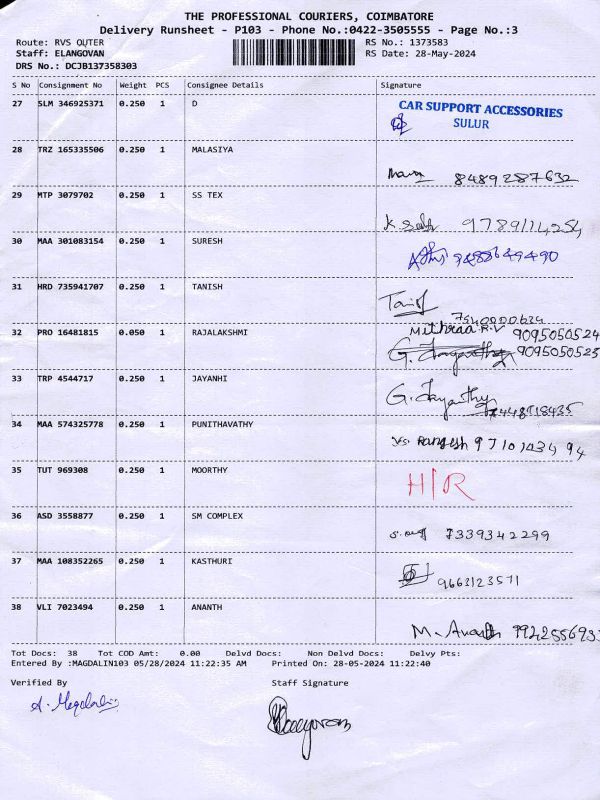 THE PROFESSIONAL COURIERS, COIMBATORE
Delivery Runsheet - P103 - Phone No.:0422-3505555 - Page No.:3
Route: RVS OUTER RS No.: 1373583
Staff: ELANGOVAN RS Date: 28-May-2024
DRS No.: DCJB137358303
S No Consignment No Weight PCS Consignee Details Signature
27 SLM 346925371 0.250 1 D CAR SUPPORT ACCESSORIES
SULUR
28 TRZ 165335506 0.250 1 MALASIYA
8489287632
29 MTP 3079702 0.250 1 SS TEX
9789114254
30 MAA 301083154 0.250 1 SURESH
9488649490
31 HRD 735941707 0.250 1 TANISH
7540000624
32 PRO 16481815 0.050 1 RAJALAKSHMI Mithraa.R.V 9095050524
G. Jayanthy 9095050525
33 TRP 4544717 0.250 1 JAYANHI
G. Jayanthy
34 MAA 574325778 0.250 1 PUNITHAVATHY
Rangesh
35 TUT 969308 0.250 1 MOORTHY H/R
36 ASD 3558877 0.250 1 SM COMPLEX
7339342299
37 MAA 108352265 0.250 1 KASTHURI
9663123571
38 VLI 7023494 0.250 1 ANANTH
M. Ananth
Tot Docs: 38 Tot COD Amt: 0.00 Delvd Docs: Non Delvd Docs: Delvy Pts:
Entered By :MAGDALIN103 05/28/2024 11:22:35 AM Printed On: 28-05-2024 11:22:40
Verified By Staff Signature